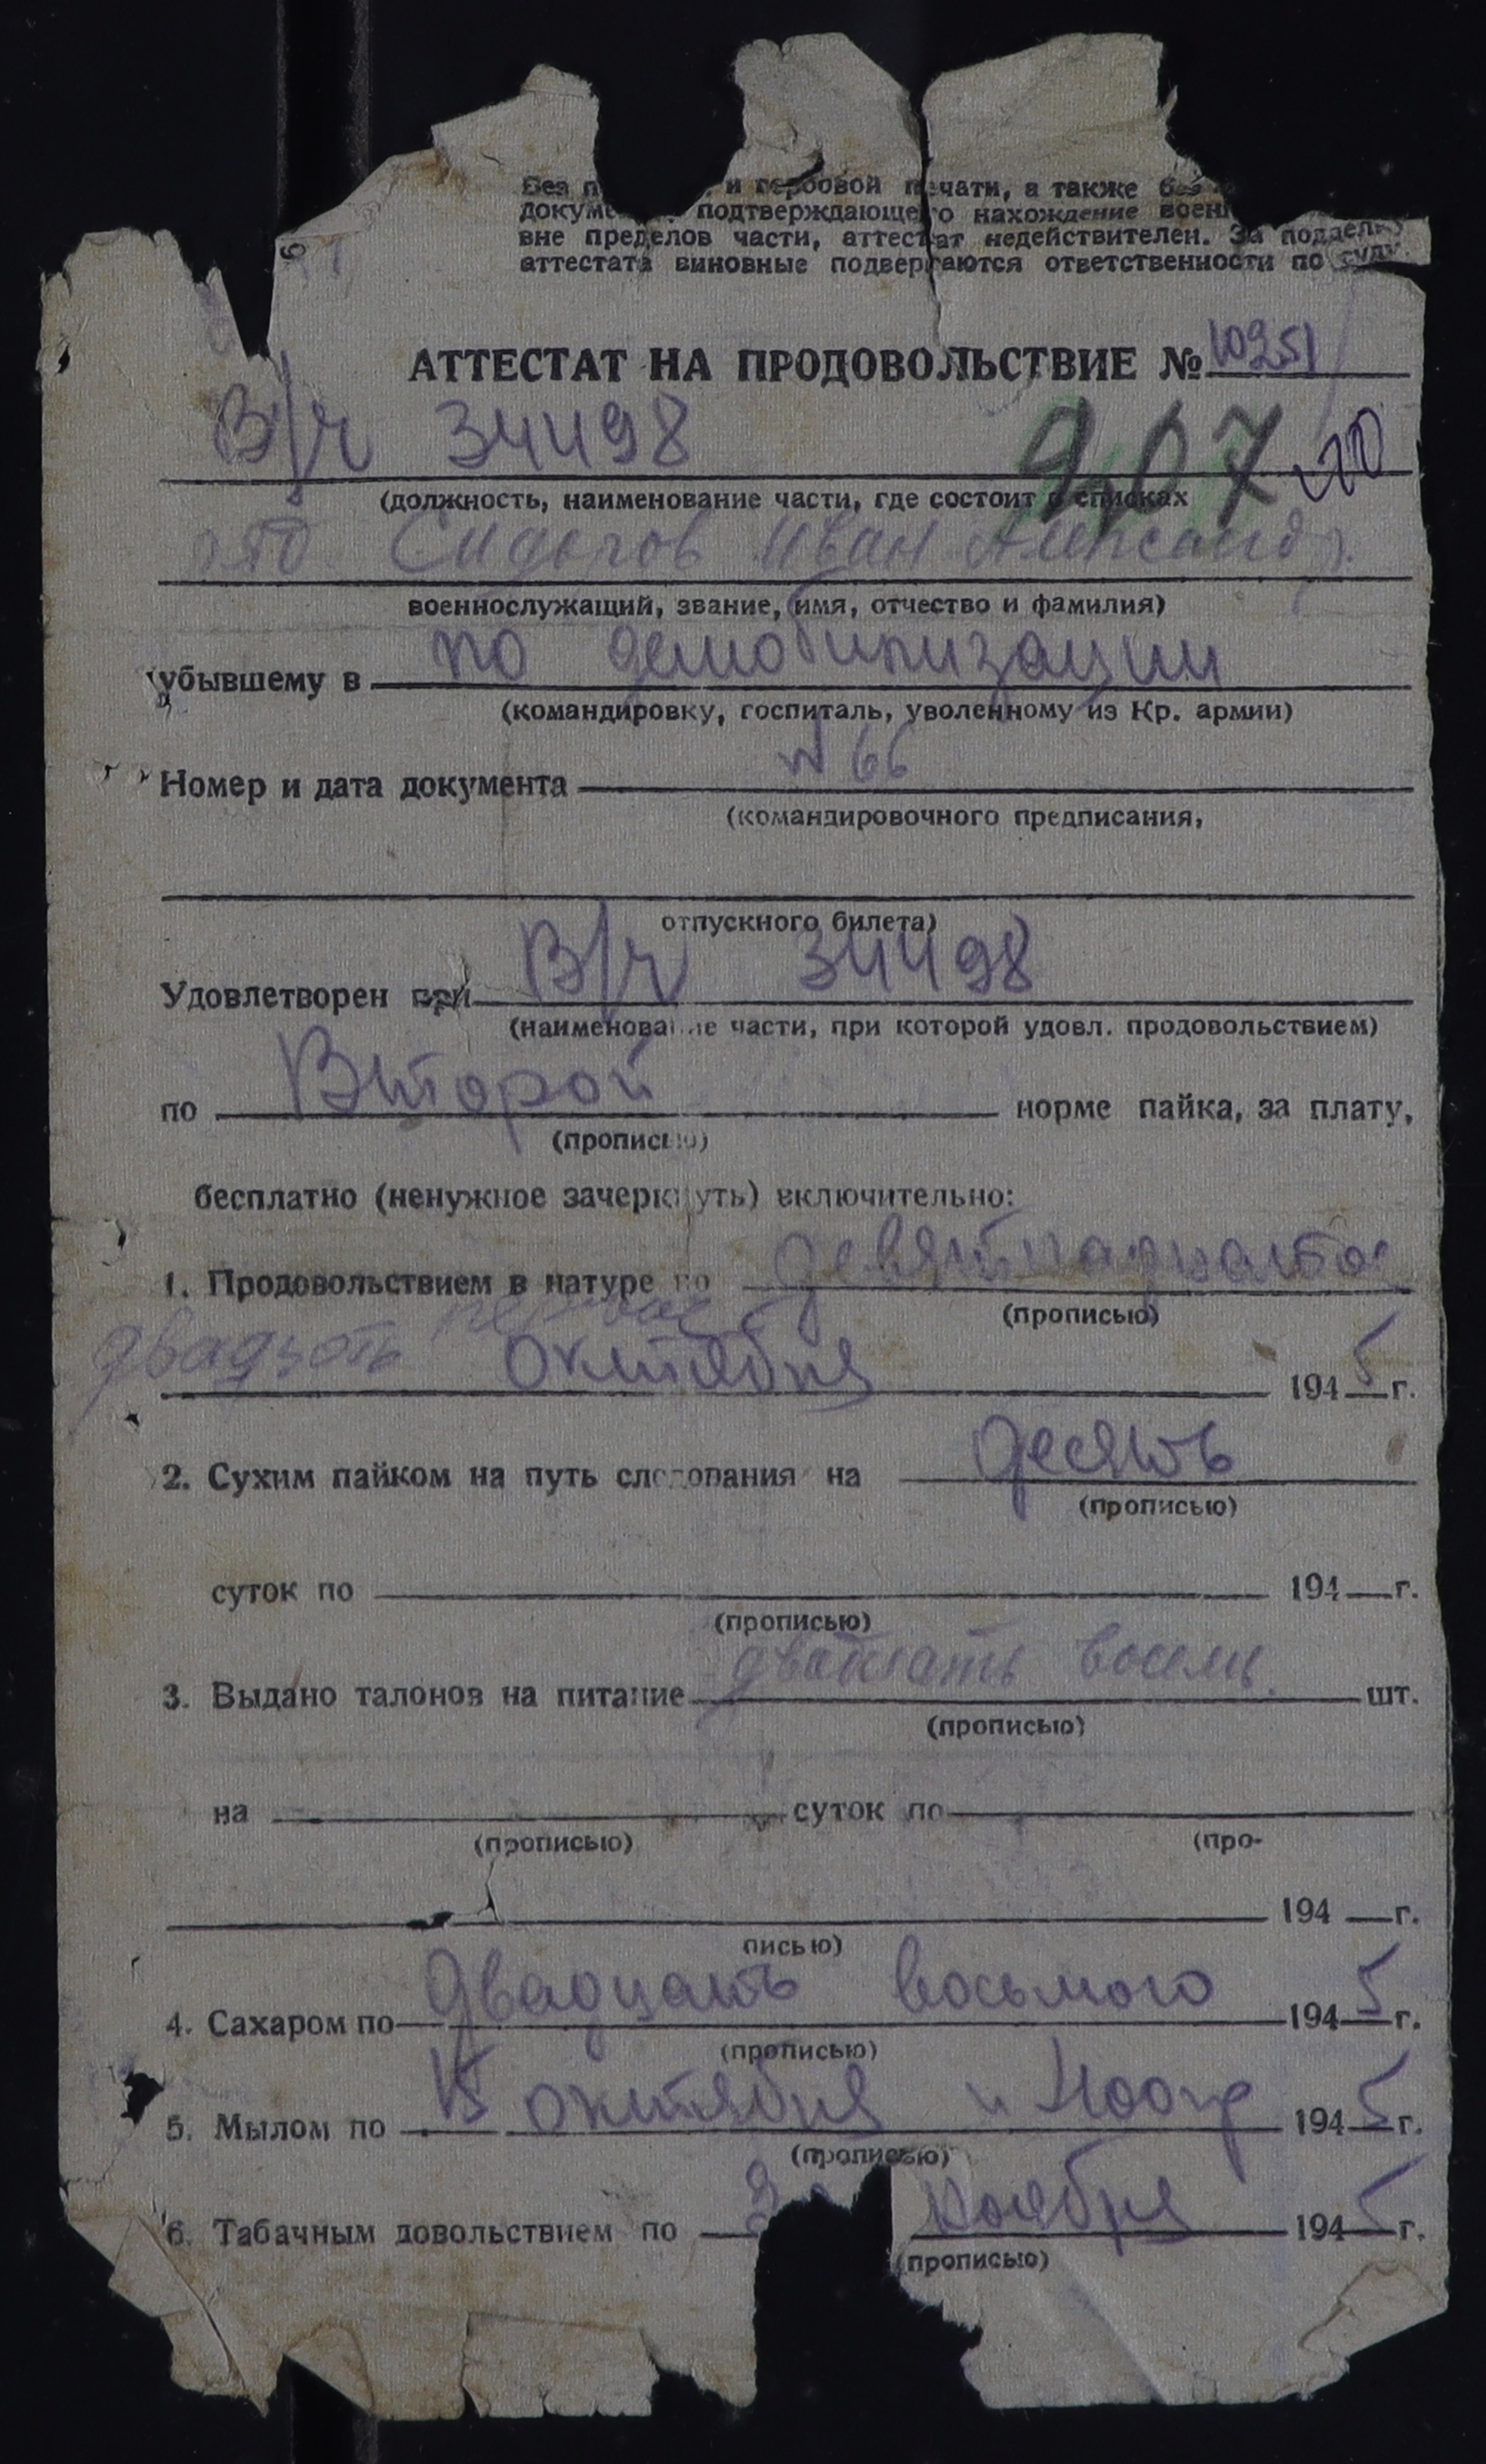 Без и гербовой печати, а также без
подтверждающего нахождение
вне пределов части, аттестат недействителен. За подделку
аттестата виновные подвергаются ответственности по суду.
АТТЕСТАТ НА ПРОДОВОЛЬСТВИЕ № 10251
В/ч 34498 907
(должность, наименование части, где состоит в списках
Сидоров Иван Александр.
военнослужащий, звание, имя, отчество и фамилия)
убывшему в по демобилизации
(командировку, госпиталь, уволенному из Кр. армии)
Номер и дата документа № 66
(командировочного предписания,
отпускного билета)
Удовлетворен при В/ч 34498
(наименование части, при которой удовл. продовольствием)
по Второй норме пайка, за плату,
(прописью)
бесплатно (ненужное зачеркнуть) включительно:
1. Продовольствием в натуре по девятнадцатое
(прописью)
двадцать первое октября 1945 г.
2. Сухим пайком на путь следования на десять
(прописью)
суток по 194 г.
(прописью)
3. Выдано талонов на питание двадцать восемь шт.
(прописью)
на суток по
(прописью) (про-
194 г.
писью)
4. Сахаром по двадцать восьмого 1945 г.
(прописью)
5. Мылом по октября и 1945 г.
(прописью)
6. Табачным довольствием по ноября 1945 г.
(прописью)